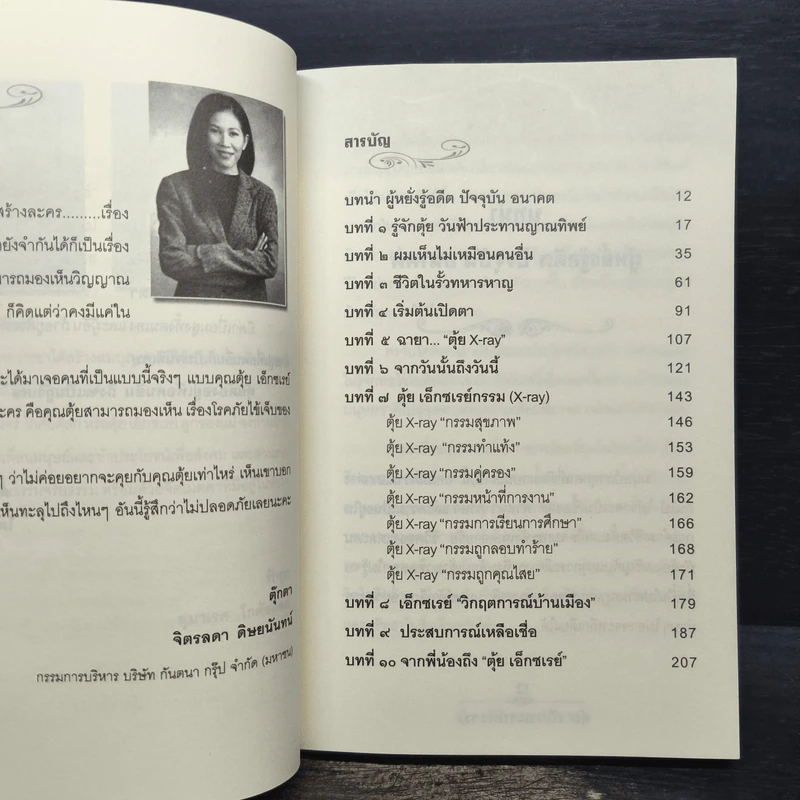 สร้างละคร.........เรื่อง
ายังจำกันได้ก็เป็นเรื่อง
ารถมองเห็นวิญญาณ
ก็คิดแต่ว่าคงมีแค่ใน
ะได้มาเจอคนที่เป็นแบบนี้จริงๆ แบบคุณตุ้ย เอ็กซเรย์
ะคร คือคุณตุ้ยสามารถมองเห็น เรื่องโรคภัยไข้เจ็บของ
ๆ ว่าไม่ค่อยอยากจะคุยกับคุณตุ้ยเท่าไหร่ เห็นเขาบอก
ห็นทะลุไปถึงไหนๆ อันนี้รู้สึกว่าไม่ปลอดภัยเลยนะคะ
ตุ๊กตา
จิตรลดา ดิษยนันทน์
กรรมการบริหาร บริษัท กันตนา กรุ๊ป จำกัด (มหาชน)
สารบัญ
บทนำ ผู้หยั่งรู้อดีต ปัจจุบัน อนาคต 12
บทที่ ๑ รู้จักตุ้ย วันฟ้าประทานญาณทิพย์ 17
บทที่ ๒ ผมเห็นไม่เหมือนคนอื่น 35
บทที่ ๓ ชีวิตในรั้วทหารหาญ 61
บทที่ ๔ เริ่มต้นเปิดตา 91
บทที่ ๕ ฉายา... "ตุ้ย X-ray" 107
บทที่ ๖ จากวันนั้นถึงวันนี้ 121
บทที่ ๗ ตุ้ย เอ็กซเรย์กรรม (X-ray) 143
ตุ้ย X-ray "กรรมสุขภาพ" 146
ตุ้ย X-ray "กรรมทำแท้ง" 153
ตุ้ย X-ray "กรรมคู่ครอง" 159
ตุ้ย X-ray "กรรมหน้าที่การงาน" 162
ตุ้ย X-ray "กรรมการเรียนการศึกษา" 166
ตุ้ย X-ray "กรรมถูกลอบทำร้าย" 168
ตุ้ย X-ray "กรรมถูกคุณไสย" 171
บทที่ ๘ เอ็กซเรย์ "วิกฤตการณ์บ้านเมือง" 179
บทที่ ๙ ประสบการณ์เหลือเชื่อ 187
บทที่ ๑๐ จากพี่น้องถึง "ตุ้ย เอ็กซเรย์" 207